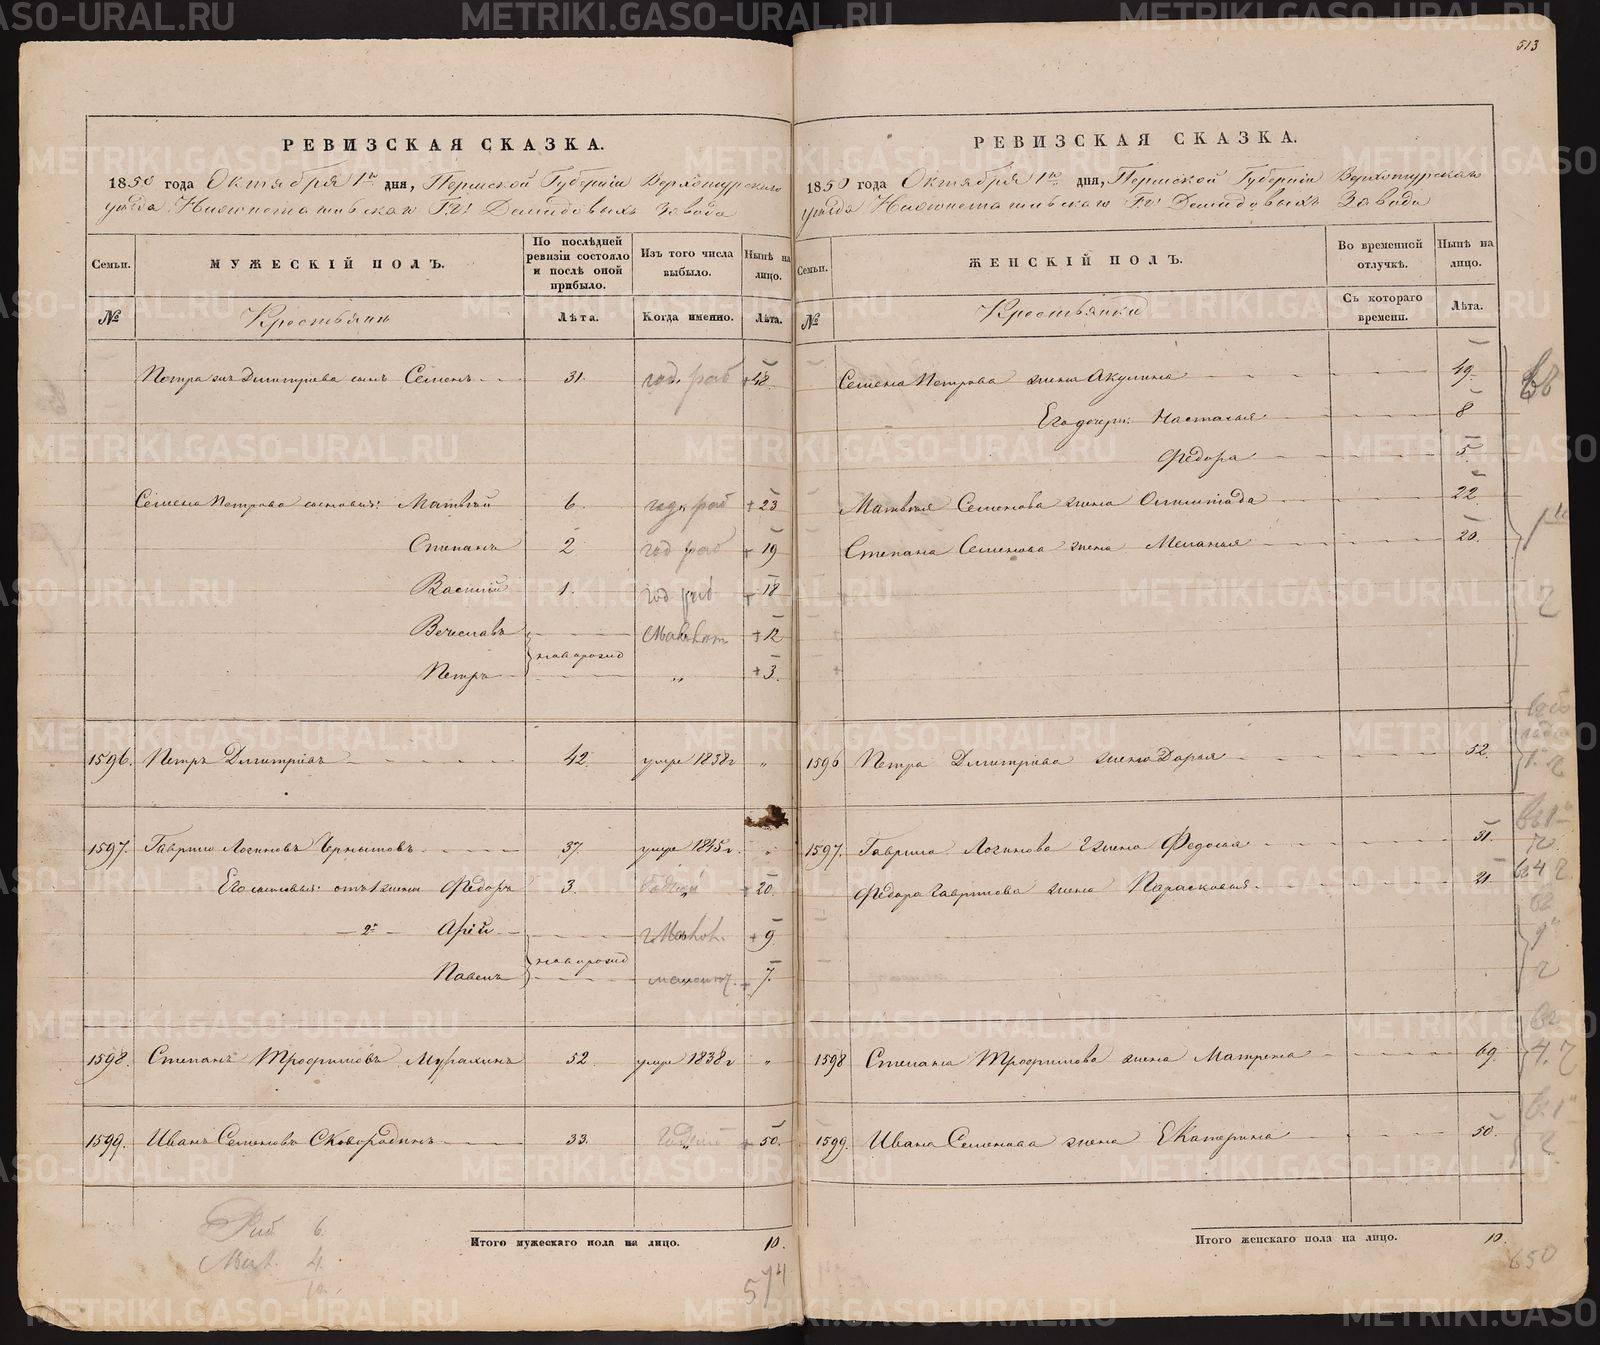 513
РЕВИЗСКАЯ СКАЗКА.
1850 года Октября 1го дня, Пермской Губерніи Верхотурскаго
уѣзда Нижнетагильскаго Г.г. Демидовыхъ Завода
Семьи.
МУЖЕСКІЙ ПОЛЪ.
По послѣдней ревизіи состояло и послѣ оной прибыло.
Изъ того числа выбыло.
Нынѣ на лицо.
№
Крестьянъ
Лѣта.
Когда именно.
Лѣта.
Петра же Дмитріева сынъ Семенъ 31. год. раб +48.
Семена Петрова сыновья: Матвѣй 6. год. раб +23
Степанъ 2 год раб + 19
Василій 1. год раб + 18
Вечеславъ новорожд +12
Петръ „ +3.
1596. Петръ Дмитріевъ 42. умре 1838 г „
1597. Гаврило Логиновъ Чернышовъ 37. умре 1845 г. „
Его сыновья: отъ 1 жены Федоръ 3. Годный + 20.
2й Арсій новорожд +9.
Павелъ малолѣт. + 7.
1598. Степанъ Трофимовъ Мурахинъ 52. умре 1838 г „
1599. Иванъ Семеновъ Сковородинъ 33. Годный + 50.
Раб 6.
Мал. 4.
10.
Итого мужескаго пола на лицо. 10.
574
РЕВИЗСКАЯ СКАЗКА.
1850 года Октября 1го дня, Пермской Губерніи Верхотурскаго
уѣзда Нижнетагильскаго Г.г. Демидовыхъ Завода
Семьи.
ЖЕНСКІЙ ПОЛЪ.
Во временной отлучкѣ.
Нынѣ на лицо.
№
Крестьянки
Съ котораго времени.
Лѣта.
Семена Петрова жена Акулина 49.
Его дочери: Настасья 8
Федора 5.
Матвѣя Семенова жена Олимпіада 22
Степана Семенова жена Меланья 20.
1596 Петра Дмитріева жена Дарья 52.
1597. Гаврила Логинова 2 жена Федосья 31.
Федора Гаврилова жена Парасковья 21
1598 Степана Трофимова жена Матрена 69.
1599. Ивана Семенова жена Екатерина 50.
Итого женскаго пола на лицо. 10.
650
METRIKI.GASO-URAL.RU